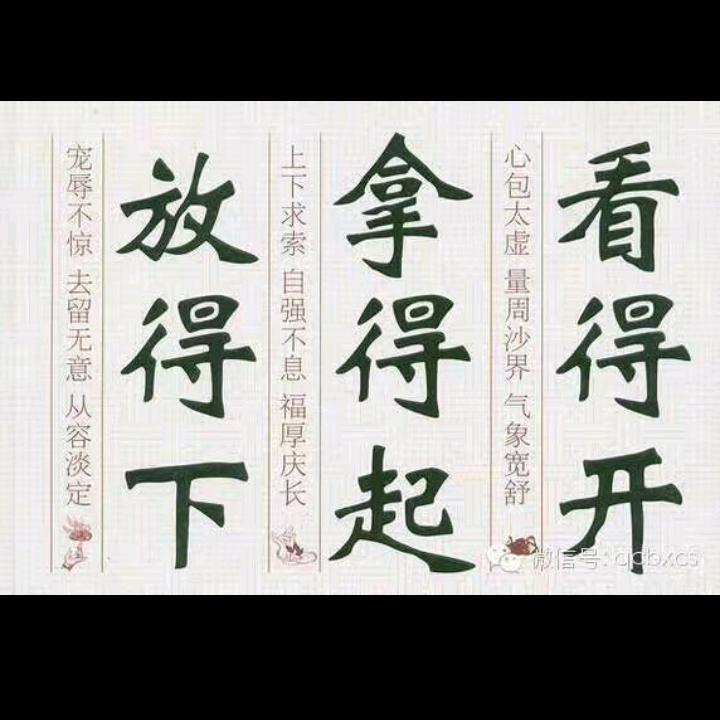 看得开
心包太虚 量周沙界 气象宽舒
拿得起
上下求索 自强不息 福厚庆长
放得下
宠辱不惊 去留无意 从容淡定
微信号: qcbxcs